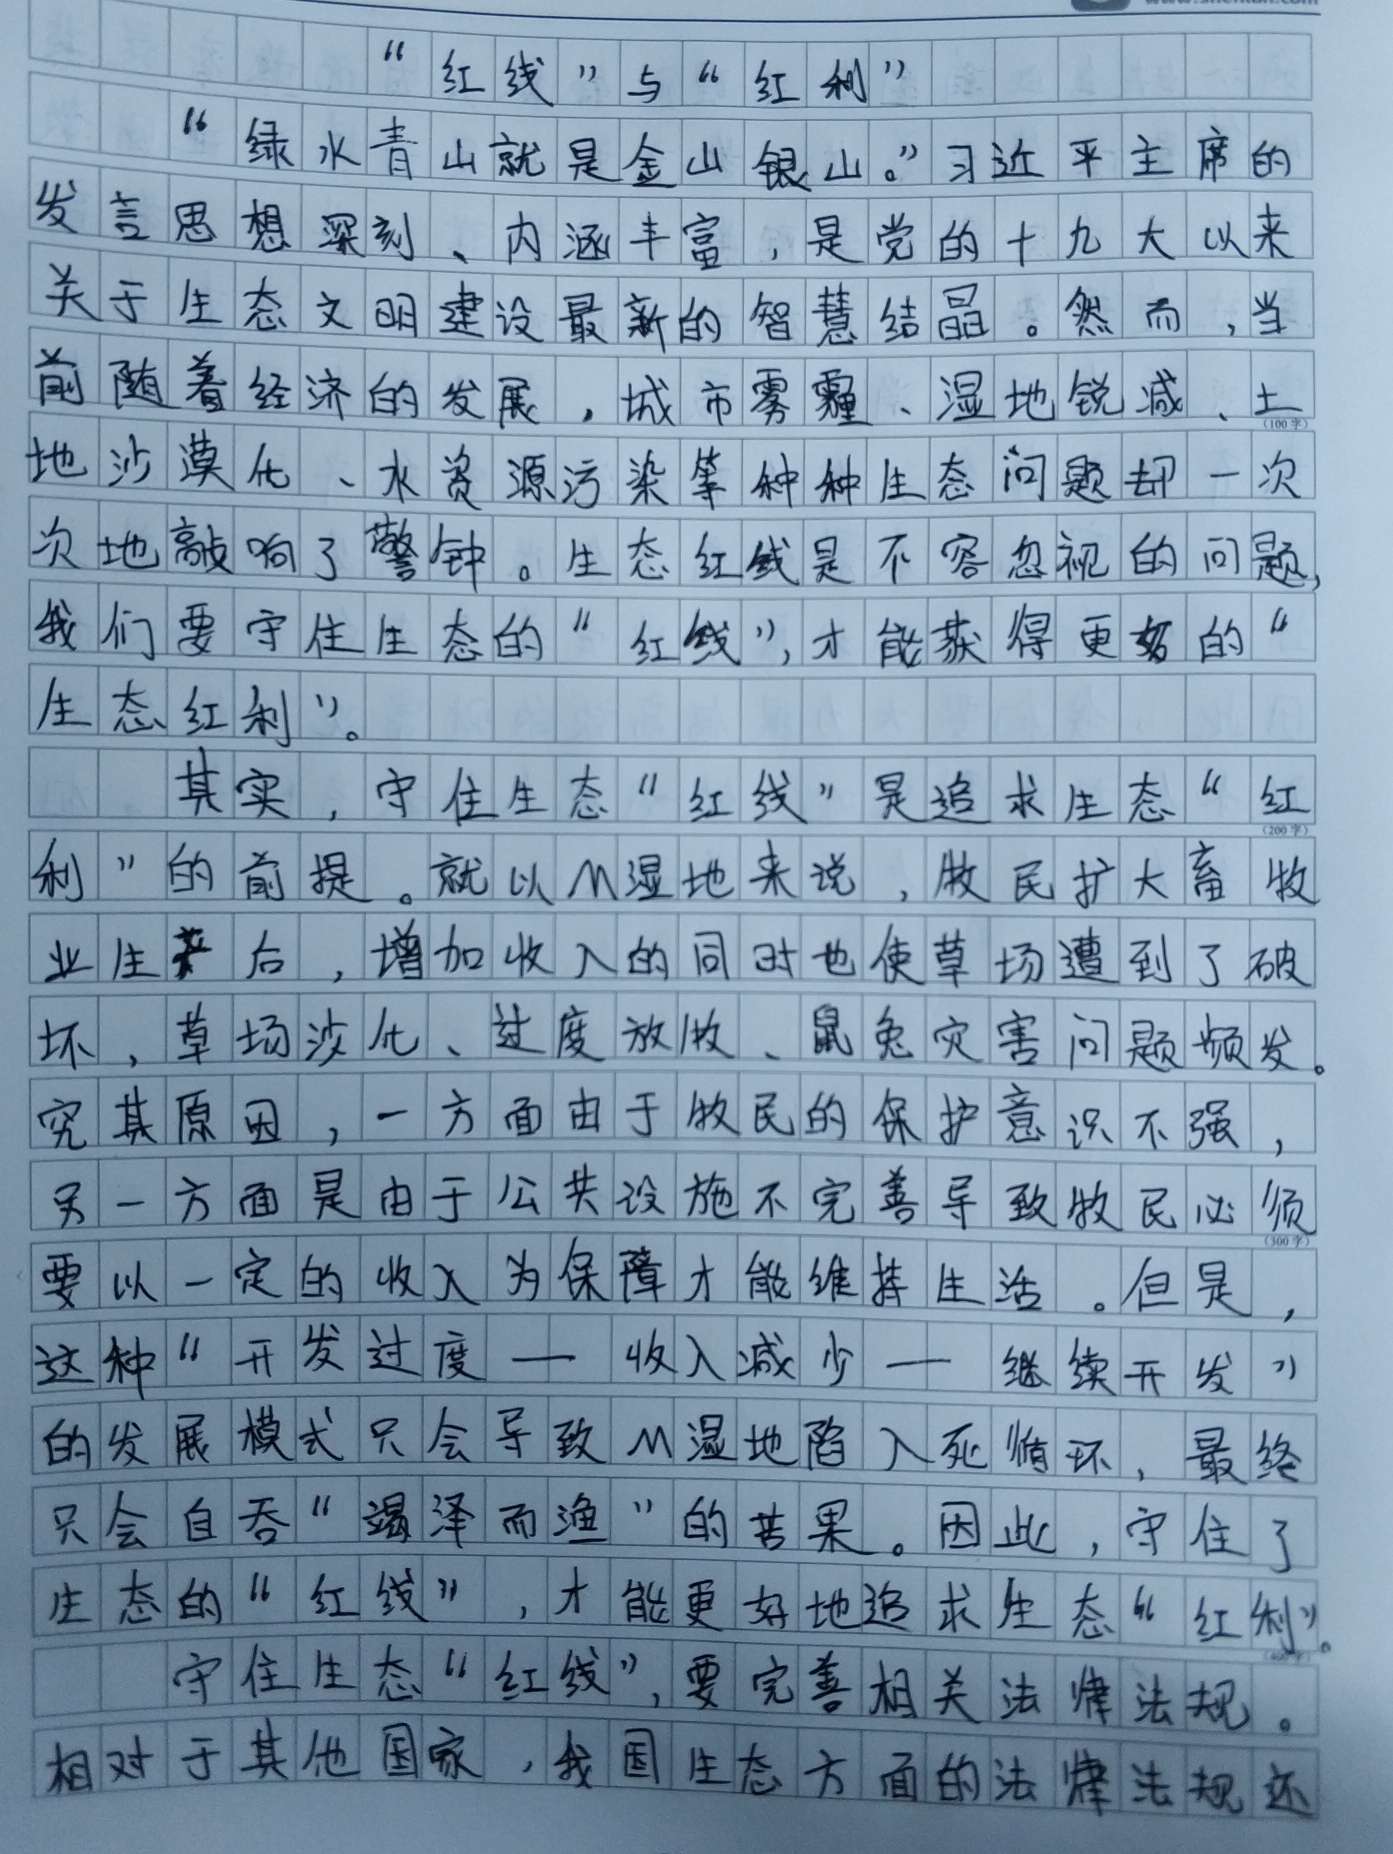 “红线”与“红利”
“绿水青山就是金山银山。”习近平主席的
发言思想深刻、内涵丰富,是党的十九大以来
关于生态文明建设最新的智慧结晶。然而,当
前随着经济的发展,城市雾霾、湿地锐减、土
(100字)
地沙漠化、水资源污染等种种生态问题却一次
次地敲响了警钟。生态红线是不容忽视的问题,
我们要守住生态的“红线”,才能获得更好的“
生态红利”。
其实,守住生态“红线”是追求生态“红
(200字)
利”的前提。就以M湿地来说,牧民扩大畜牧
业生产后,增加收入的同时也使草场遭到了破
坏,草场沙化、过度放牧、鼠兔灾害问题频发。
究其原因,一方面由于牧民的保护意识不强,
另一方面是由于公共设施不完善导致牧民必须
(300字)
要以一定的收入为保障才能维持生活。但是,
这种“开发过度—收入减少—继续开发”
的发展模式只会导致M湿地陷入死循环,最终
只会自吞“竭泽而渔”的苦果。因此,守住了
生态的“红线”,才能更好地追求生态“红利”。
(400字)
守住生态“红线”,要完善相关法律法规。
相对于其他国家,我国生态方面的法律法规还